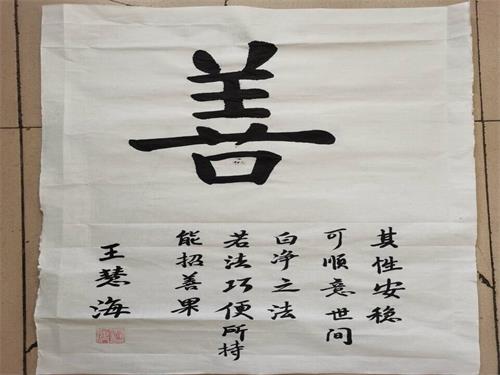 善
其性安稳
可顺意世间
白净之法
若法巧便所持
能招善果
王慧海